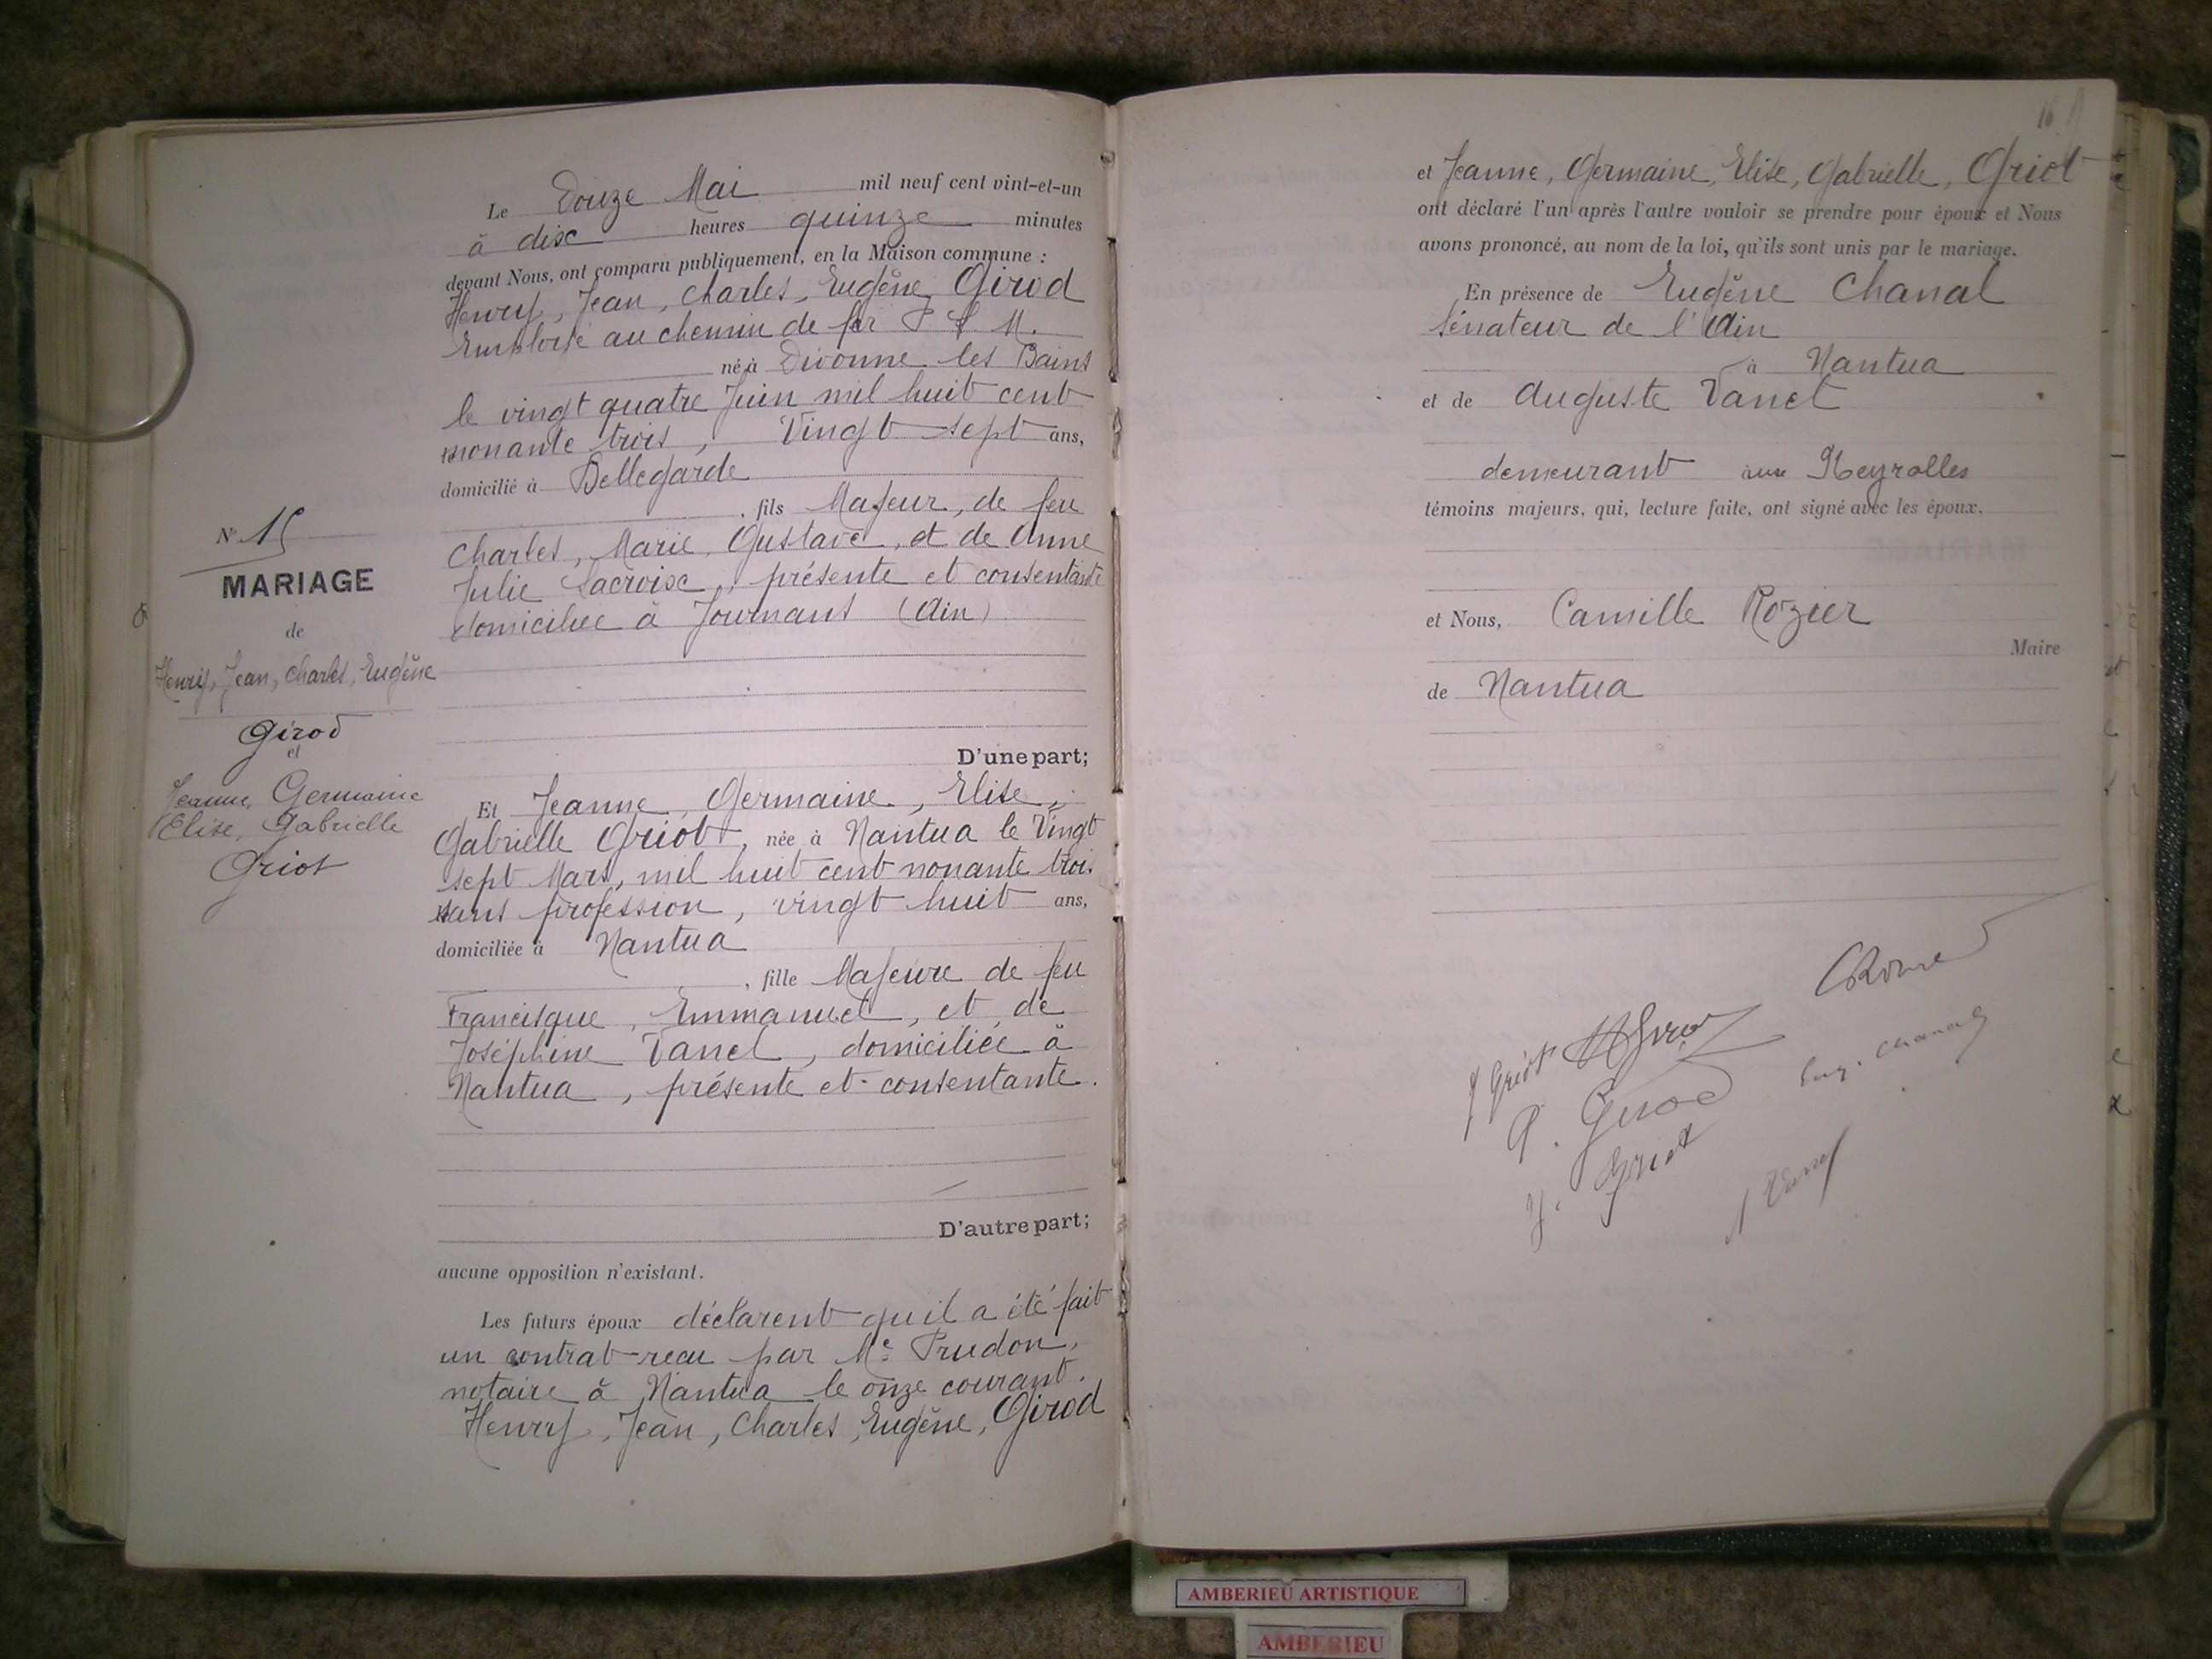 N° 15
MARIAGE
de
Henry, Jean, Charles, Eugène
Girod
et
Jeanne, Germaine
Elise, Gabrielle
Griot
Le Douze Mai mil neuf cent vint-et-un
à dix heures quinze minutes
devant Nous, ont comparu publiquement, en la Maison commune :
Henry, Jean, Charles, Eugène, Girod
Employé au chemin de fer P L M.
né à Divonne les Bains
le vingt quatre Juin mil huit cent
nonante trois, Vingt sept ans,
domicilié à Bellegarde
, fils Majeur, de feu
Charles, Marie, Gustave, et de Anne
Julie Lacroix, présente et consentante
domiciliée à Journans (Ain)
D'une part;
Et Jeanne, Germaine, Elise,
Gabrielle Griot, née à Nantua le Vingt
sept Mars, mil huit cent nonante trois
sans profession, vingt huit ans,
domiciliée à Nantua
, fille Majeure de feu
Francisque, Emmanuel, et de
Joséphine Vanel, domiciliée à
Nantua, présente et consentante.
D'autre part;
aucune opposition n'existant.
Les futurs époux déclarent qu'il a été fait
un contrat reçu par Me Prudon,
notaire à Nantua le onze courant.
Henry, Jean, Charles, Eugène, Girod
16
et Jeanne, Germaine, Elise, Gabrielle, Griot
ont déclaré l'un après l'autre vouloir se prendre pour époux et Nous
avons prononcé, au nom de la loi, qu'ils sont unis par le mariage.
En présence de Eugène Chanal
Sénateur de l'Ain
à Nantua
et de Auguste Vanel
demeurant aux Neyrolles
témoins majeurs, qui, lecture faite, ont signé avec les époux.
et Nous, Camille Rozier
Maire
de Nantua
J Griot H Girod
G. Girod Eug. Chanal
J. Griot
AMBERIEU ARTISTIQUE
AMBERIEU